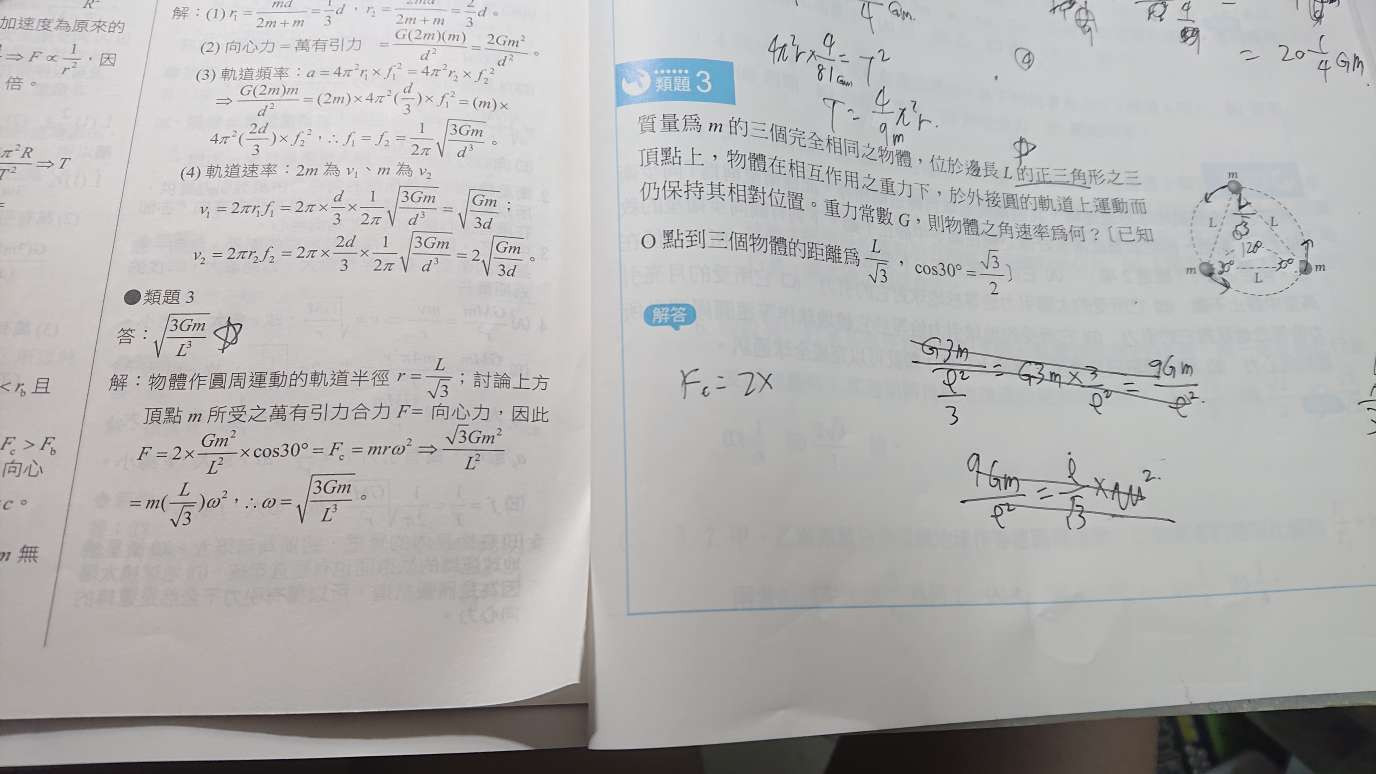 加速度為原來的
⇒ F ∝ 1/r²,因
倍。
π²R/T² ⇒ T
< r_b 且
F_c > F_b
向心
c。
m 無
解:(1) r₁ = md/(2m+m) = 1/3 d,r₂ = 2md/(2m+m) = 2/3 d。
(2) 向心力=萬有引力 = G(2m)(m)/d² = 2Gm²/d²。
(3) 軌道頻率:a = 4π²r₁ × f₁² = 4π²r₂ × f₂²
⇒ G(2m)m/d² = (2m) × 4π²(d/3) × f₁² = (m) ×
4π²(2d/3) × f₂²,∴ f₁ = f₂ = 1/2π √(3Gm/d³)。
(4) 軌道速率:2m 為 v₁、m 為 v₂
v₁ = 2πr₁f₁ = 2π × d/3 × 1/2π √(3Gm/d³) = √(Gm/3d);
v₂ = 2πr₂f₂ = 2π × 2d/3 × 1/2π √(3Gm/d³) = 2√(Gm/3d)。
●類題 3
答:√(3Gm/L³)
解:物體作圓周運動的軌道半徑 r = L/√3;討論上方
頂點 m 所受之萬有引力合力 F= 向心力,因此
F = 2 × Gm²/L² × cos30° = F_c = mrω² ⇒ √3Gm²/L²
= m(L/√3)ω²,∴ ω = √(3Gm/L³)。
4π²r × 4/81Gm = T²
T = 4/9m π²r.
④
= 20 1/4 Gm
類題 3
質量為 m 的三個完全相同之物體,位於邊長 L 的正三角形之三
頂點上,物體在相互作用之重力下,於外接圓的軌道上運動而
仍保持其相對位置。重力常數 G,則物體之角速率為何?〔已知
O 點到三個物體的距離為 L/√3,cos30° = √3/2〕
m
L
L/√3
L
120
30°
30°
m
L
m
解答
F_c = 2×
G3m/(ℓ²/3) = G3m × 3/ℓ² = 9Gm/ℓ²
9Gm/ℓ² = ℓ/√3 × ω².